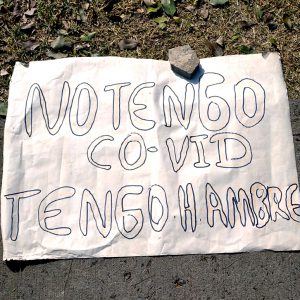 NO TENGO
CO-VID
TENGO HAMBRE